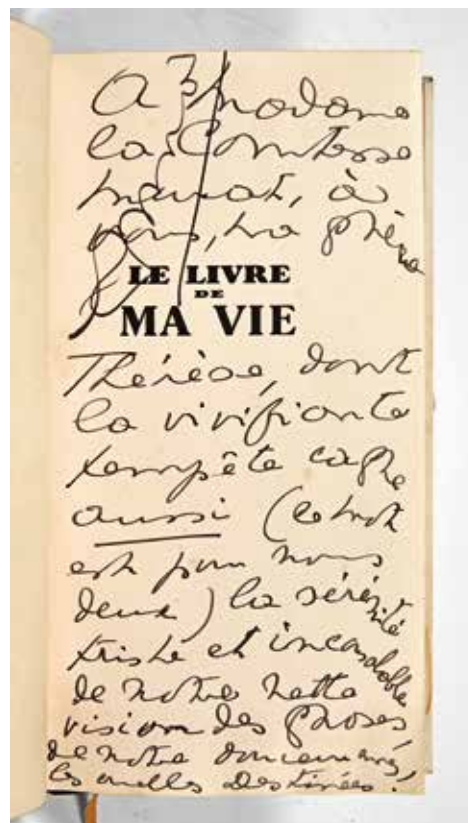 A Madame
la Comtesse
Murat, à
vous, ma chère
LE LIVRE
DE
MA VIE
Thérèse, dont
la vivifiante
tempête cache
aussi (ce mot
est pour nous
deux) la sérénité
triste et inconsolable
de notre nette
vision des choses,
de notre
les cruelles destinées.